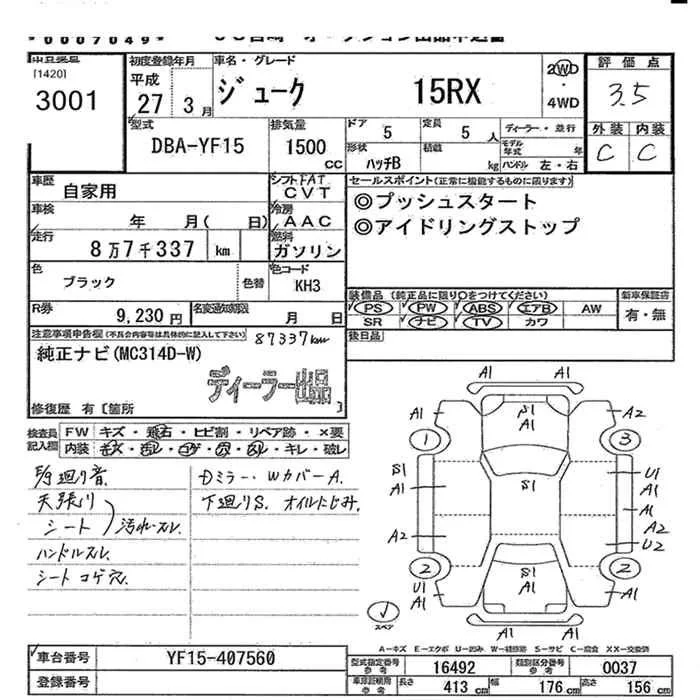 *0007049*
[1420]
3001
初度登録年月
平成
27 3月
車名・グレード
ジューク 15RX
2WD
・
4WD
評価点
3.5
外装 内装
C C
型式
DBA-YF15
排気量
1500 cc
ドア 5
定員 5 人
ディーラー・並行
形状 ハッチB
積載 kg
モデル年式 年
ハンドル 左・右
車歴
自家用
シフト FAT
CVT
車検
年 月( 日)
冷房
AAC
走行
8万7千337 km
燃料
ガソリン
色
ブラック
色替
色コード
KH3
R券
9,230円
名変通知期限
月 日
セールスポイント(正常に機能するものに限ります)
◎プッシュスタート
◎アイドリングストップ
装備品 (純正品に限り○をつけてください)
PS PW ABS エアB AW
SR ナビ TV カワ
新車保証書
有・無
後日品
注意事項申告欄(不具合内容等は具体的に記入して下さい)
87337km
純正ナビ(MC314D-W)
ディーラー出品
修復歴 有〔箇所 〕
検査員記入欄
FW キズ・飛石・ヒビ割・リペア跡・×要
内装 キズ・汚レ・コゲ・穴・スレ・キレ・破レ
廻り音
天張り
シート 汚れ・スレ.
ハンドルスレ.
シートコゲ穴.
Dミラー・WカバーA.
下廻りS. オイルにじみ.
A1 A1
A1 S1 A2
1 3
S1 U1
A1 S1 A1
A1
A2 A2
U2
2 S1 2
U1 A1 A1
A1
A1 A1
スペア
A-キズ E-エクボ U-凹み W-補修跡 S-サビ C-腐食 XX-交換済
車台番号 YF15-407560
登録番号
型式指定番号 参考 16492
類別区分番号 参考 0037
車庫証明用 参考 長さ 413 cm 幅 176 cm 高さ 156 cm